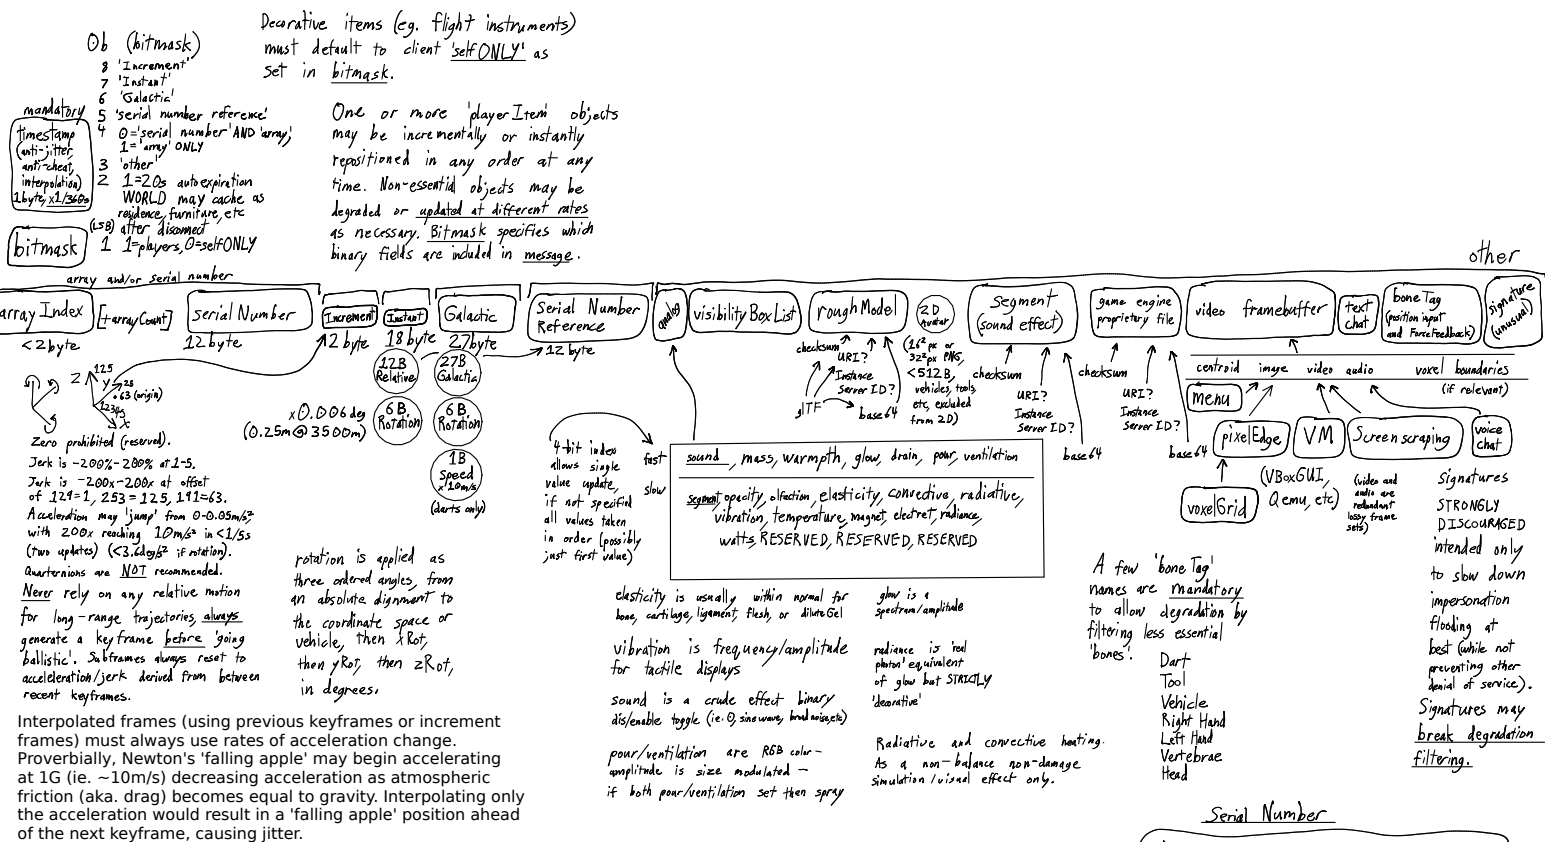 Decorative items (eg. flight instruments)
must default to client 'selfONLY' as
set in bitmask.
Ob (bitmask)
8 'Increment'
7 'Instant'
6 'Galactic'
5 'serial number reference'
4 0='serial number' AND 'array',
1='array' ONLY
3 'other'
2 1=20s autoexpiration
WORLD may cache as
residence, furniture, etc
after disconnect
(LSB)
1 1=players, 0=selfONLY
mandatory
timestamp
(anti-jitter,
anti-cheat,
interpolation)
1byte, x1/360s
bitmask
One or more 'playerItem' objects
may be incrementally or instantly
repositioned in any order at any
time. Non-essential objects may be
degraded or updated at different rates
as necessary. Bitmask specifies which
binary fields are included in message.
other
array and/or serial number
array Index
[+arrayCount]
Serial Number
Increment
Instant
Galactic
Serial Number
Reference
analog
visibilityBoxList
roughModel
2D
Avatar
Segment
(sound effect)
game engine
proprietary file
video framebuffer
text
chat
boneTag
(position input
and ForceFeedback)
signature
(unusual)
<2byte
12byte
2byte
18byte
27byte
12byte
12B
Relative
6B
Rotation
27B
Galactic
6B
Rotation
1B
Speed
x10m/s
(darts only)
x0.006deg
(0.25m@3500m)
Z
125
Y
.63 (origin)
X
Zero prohibited (reserved).
Jerk is -200%-200% at 1-5.
Jerk is -200x-200x at offset
of 129=1, 253=125, 191=63.
Acceleration may 'jump' from 0-0.05m/s²
with 200x reaching 10m/s² in <1/5s
(two updates) (<3.6deg/s² if rotation).
Quarternions are NOT recommended.
Never rely on any relative motion
for long-range trajectories, always
generate a keyframe before 'going
ballistic'. Subframes always reset to
acceleration/jerk derived from between
recent keyframes.
rotation is applied as
three ordered angles, from
an absolute alignment to
the coordinate space or
vehicle, then xRot,
then yRot, then zRot,
in degrees.
Interpolated frames (using previous keyframes or increment
frames) must always use rates of acceleration change.
Proverbially, Newton's 'falling apple' may begin accelerating
at 1G (ie. ~10m/s) decreasing acceleration as atmospheric
friction (aka. drag) becomes equal to gravity. Interpolating only
the acceleration would result in a 'falling apple' position ahead
of the next keyframe, causing jitter.
4-bit index
allows single
value update,
if not specified
all values taken
in order (possibly
just first value)
fast
slow
sound, mass, warmpth, glow, drain, pour, ventilation
segment, opacity, olfaction, elasticity, convective, radiative,
vibration, temperature, magnet, electret, radiance,
watts, RESERVED, RESERVED, RESERVED
checksum
URI?
Instance
Server ID?
glTF
base64
(16²px or
32²px PNG,
<512B,
vehicles, tools,
etc, excluded
from 2D)
checksum
URI?
Instance
Server ID?
base64
checksum
URI?
Instance
Server ID?
base64
centroid image video audio voxel boundaries
(if relevant)
menu
pixelEdge
VM
Screen scraping
voice
chat
voxelGrid
(VBoxGUI,
Qemu, etc)
(video and
audio are
redundant
lossy frame
sets)
elasticity is usually within normal for
bone, cartilage, ligament, flesh, or dilute Gel
vibration is frequency/amplitude
for tactile displays
sound is a crude effect binary
dis/enable toggle (ie. 0, sinewave, broad noise, etc)
pour/ventilation are RGB color -
amplitude is size modulated -
if both pour/ventilation set then spray
glow is a
spectrum/amplitude
radiance is 'real
photon' equivalent
of glow but STRICTLY
'decorative'
Radiative and convective heating.
As a non-balance non-damage
simulation/visual effect only.
A few 'bone Tag'
names are mandatory
to allow degradation by
filtering less essential
'bones'.
Dart
Tool
Vehicle
Right Hand
Left Hand
Vertebrae
Head
Signatures
STRONGLY
DISCOURAGED
intended only
to slow down
impersonation
flooding at
best (while not
preventing other
denial of service).
Signatures may
break degradation
filtering.
Serial Number